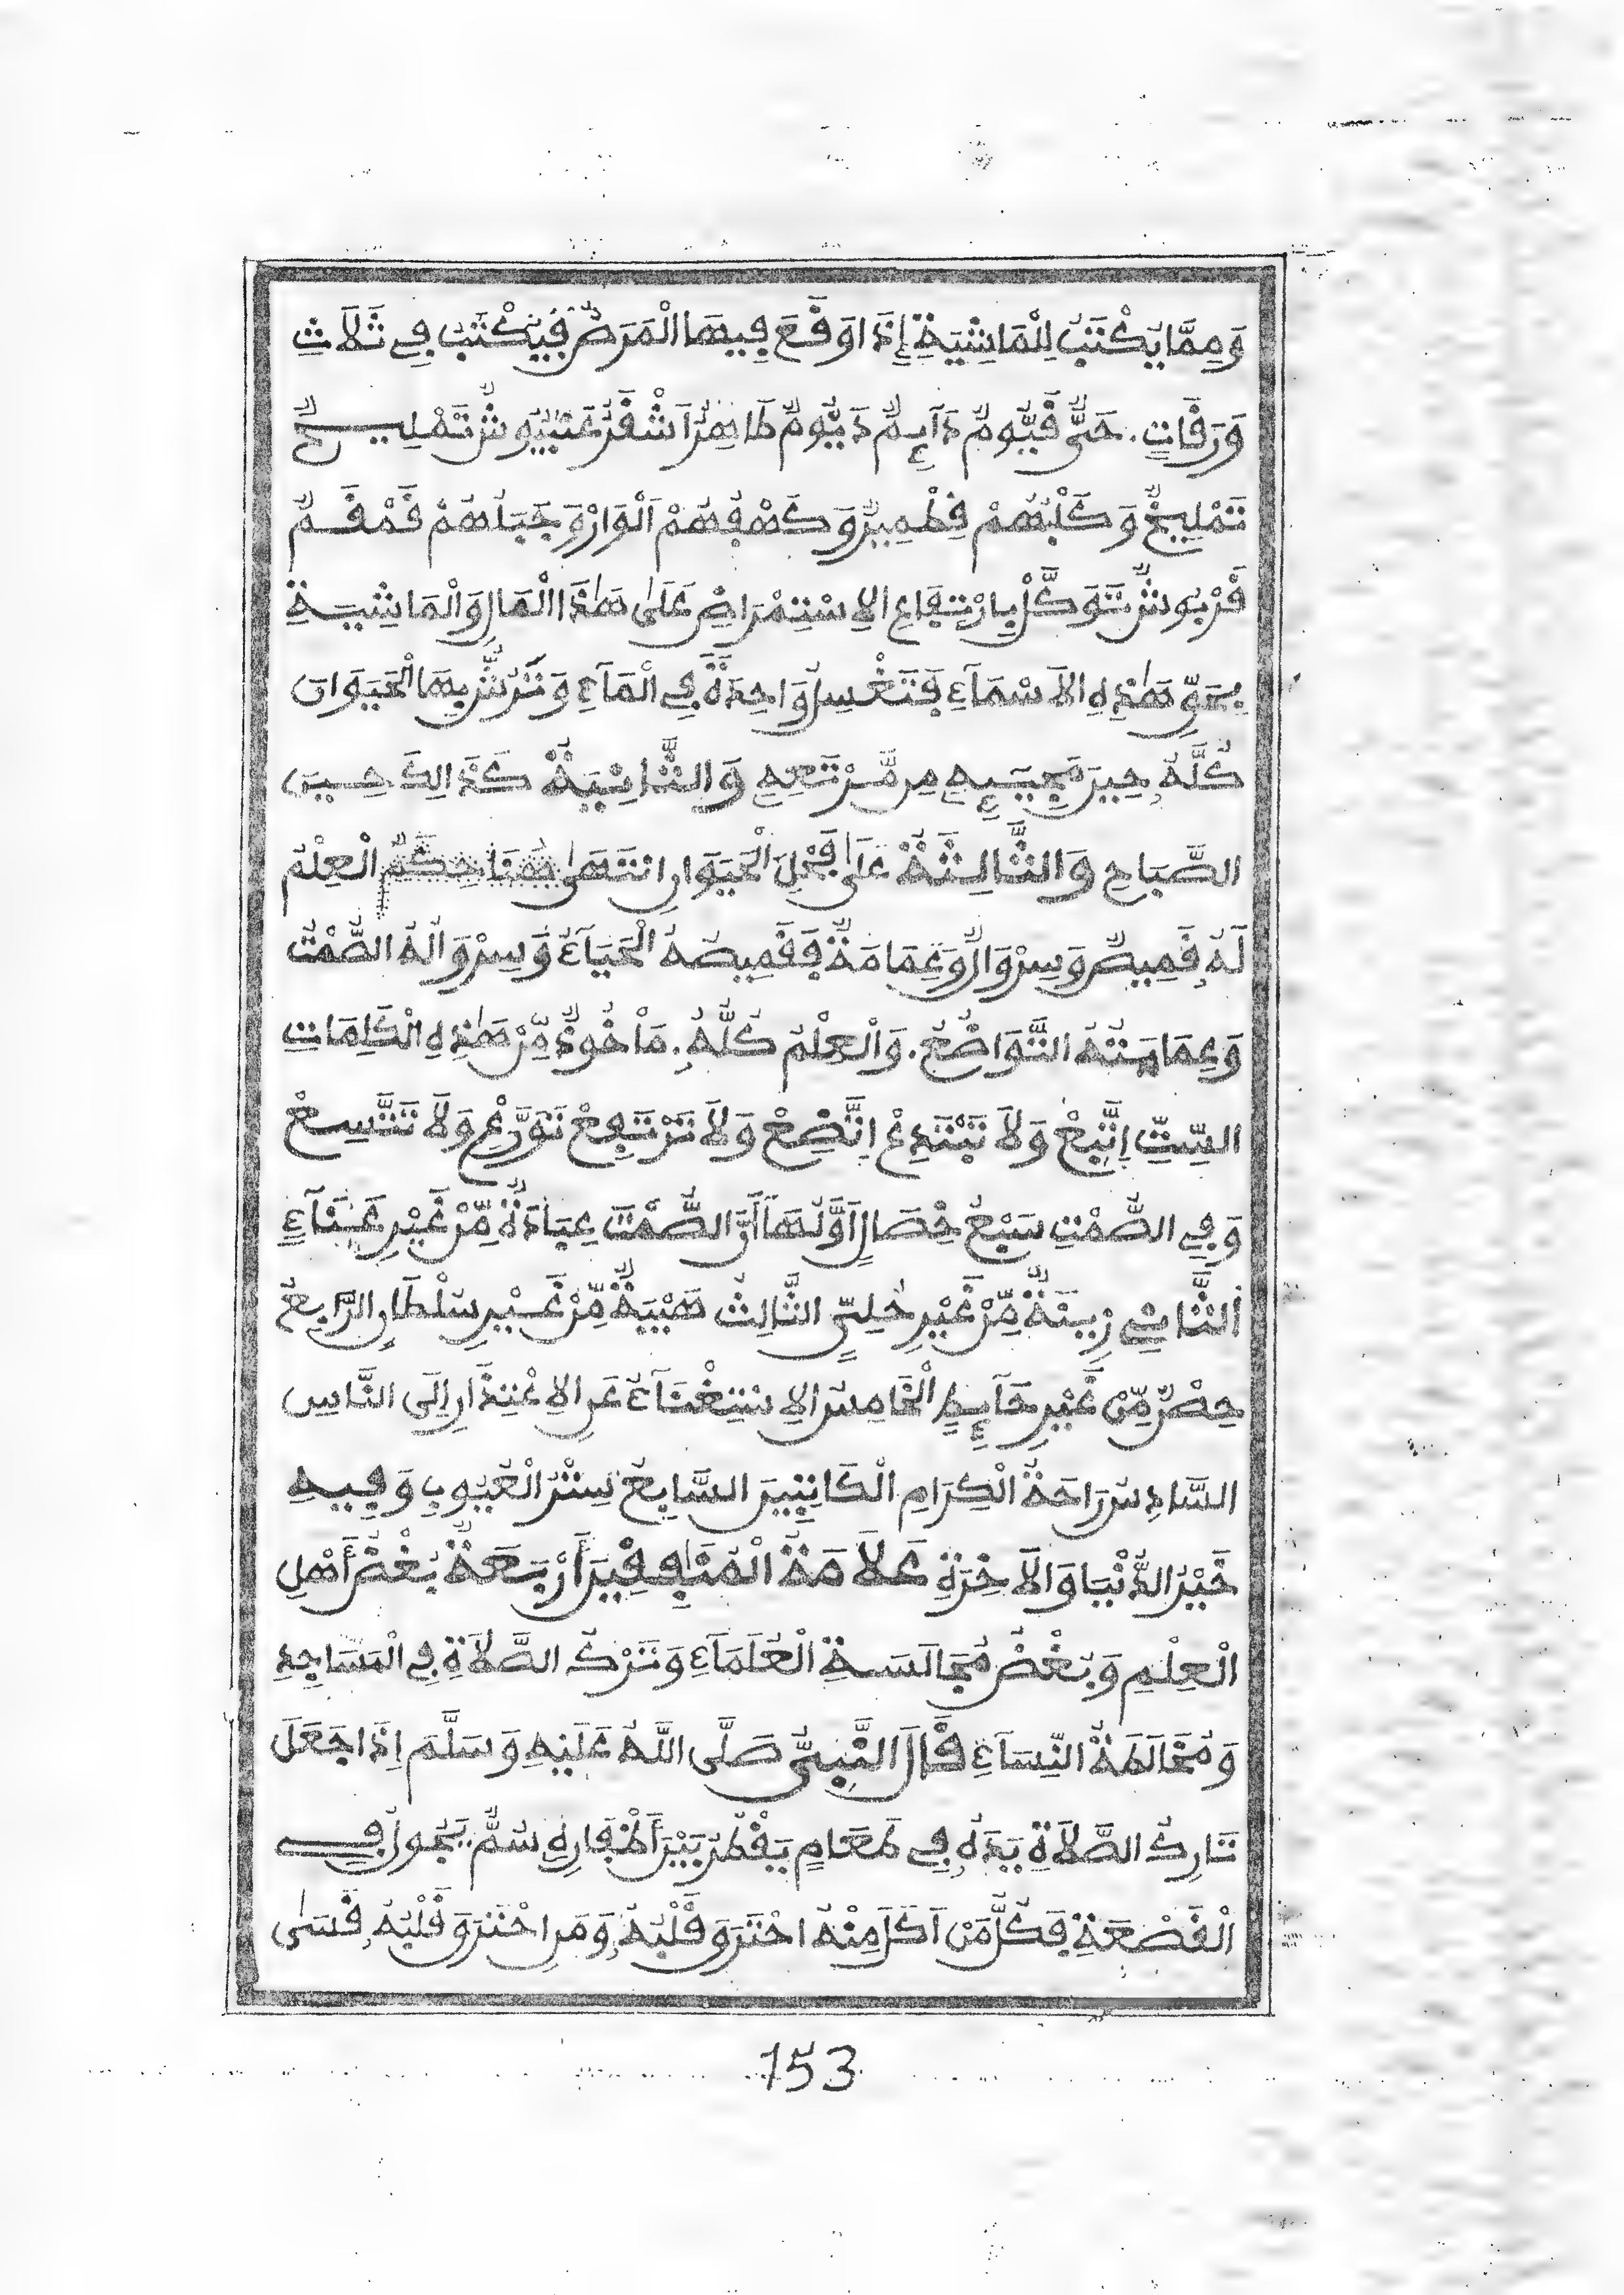 وَمِمَّا يُكْتَبُ لِلْمَاشِيَةِ إِذَا وَقَعَ فِيهَا الْمَرَضُ فَيُكْتَبُ فِي ثَلَاثِ
وَرَقَاتٍ . حَيٌّ قَيُّومٌ دَآئِمٌ دَيُّومٌ طَاهِرٌ اَشْقَرُ غَبْيُوشٌ تَمْلِيخٌ
تَمْلِيخٌ وَكَلْبُهُمْ قِطْمِيرٌ وَكَهْفُهُمْ اَلْوَارْ وَجَبَلُهُمْ قَمْقَمٌ
قَرْبُوشٌ تَوَكَّلْ بِارْتِفَاعِ الِاسْتِمْرَاضِ عَلَى هَذَا الْمَالِ وَالْمَاشِيَةِ
بِحَقِّ هَذِهِ الاَسْمَآءِ فَتَغْسِلُ وَاحِدَةً فِي الْمَآءِ وَتَرُشُّ بِهَا الْحَيَوَانَ
كُلَّهُ حِينَ مَجِيئِهِ مِن مَّرْتَعِهِ وَالثَّانِيَةُ كَذَالِكَ حِينَ
الصَّبَاحِ وَالثَّالِثَةُ عَلَى فَحْلِ الْحَيَوَانِ انْتَهَى هُنَا حِكَمٌ الْعِلْمُ
لَهُ قَمِيصٌ وَسِرْوَالٌ وَعِمَامَةٌ فَقَمِيصُهُ الْحَيَآءُ وَسِرْوَالُهُ الصَّمْتُ
وَعِمَامَتُهُ التَّوَاضُعُ . وَالْعِلْمُ كُلُّهُ . مَاْخُوذٌ مِّنْ هَذِهِ الْكَلِمَاتِ
السِّتِّ اِتَّبِعْ وَلَا تَبْتَدِعْ اِتَّضِعْ وَلَا تَرْتَفِعْ تَوَرَّعْ وَلَا تَتَّسِعْ
وَفِي الصَّمْتِ سَبْعُ خِصَالٍ اَوَّلُهَا اَنَّ الصَّمْتَ عِبَادَةٌ مِّنْ غَيْرِ عَنَآءٍ
اَلثَّانِي زِينَةٌ مِّنْ غَيْرِ حُلِيٍّ الثَّالِثُ هَيْبَةٌ مِّنْ غَيْرِ سُلْطَانٍ الرَّابِعُ
حِصْنٌ مِّنْ غَيْرِ حَآئِطٍ الْخَامِسُ الِاسْتِغْنَآءُ عَنِ الِاعْتِذَارِ إِلَى النَّاسِ
السَّادِسُ رَاحَةُ الْكِرَامِ الْكَاتِبِينَ السَّابِعُ سِتْرُ الْعُيُوبِ وَفِيهِ
خَيْرُ الدُّنْيَا وَالَاخِرَةِ عَلَامَةُ الْمُنَافِقِينَ أَرْبَعَةٌ بُغْضُ أَهْلِ
الْعِلْمِ وَبُغْضُ مُجَالَسَةِ الْعُلَمَآءِ وَتَرْكُ الصَّلَاةِ فِي الْمَسَاجِدِ
وَمُخَالَطَةُ النِّسَآءِ قَالَ النَّبِيُّ صَلَّى اللَّهُ عَلَيْهِ وَسَلَّمَ إِذَا جَعَلَ
تَارِكُ الصَّلَاةِ يَدَهُ فِي طَعَامٍ يَقْطُرُ بَيْنَ أَظْفَارِهِ سُمٌّ يَجُولُ فِي
الْقَصْعَةِ فَكُلُّ مَنْ اَكَلَ مِنْهُ احْتَرَقَ قَلْبُهُ وَمَنِ احْتَرَقَ قَلْبُهُ قَسَى
153